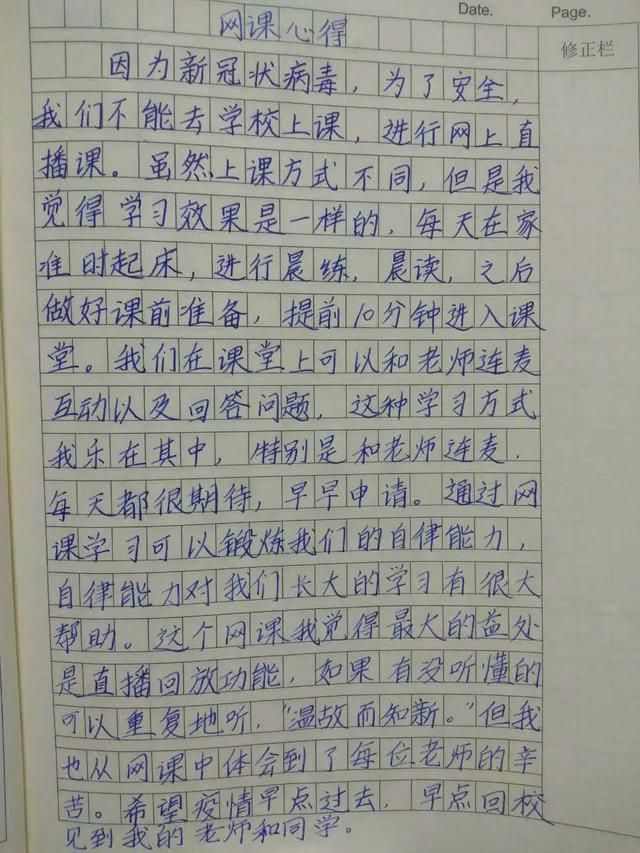 Date. Page.
网课心得
修正栏
因为新冠状病毒，为了安全，
我们不能去学校上课，进行网上直
播课。虽然上课方式不同，但是我
觉得学习效果是一样的，每天在家
准时起床，进行晨练，晨读，之后
做好课前准备，提前10分钟进入课
堂。我们在课堂上可以和老师连麦
互动以及回答问题，这种学习方式
我乐在其中，特别是和老师连麵，
每天都很期待，早早申请。通过网
课学习可以锻炼我们的自律能力，
自律能力对我们长大的学习有很大
帮助。这个网课我觉得最大的益处
是直播回放功能，如果有没听懂的
可以重复地听，“温故而知新。”但我
也从网课中体会到了每位老师的辛
苦。希望疫情早点过去，早点回校
见到我的老师和同学。